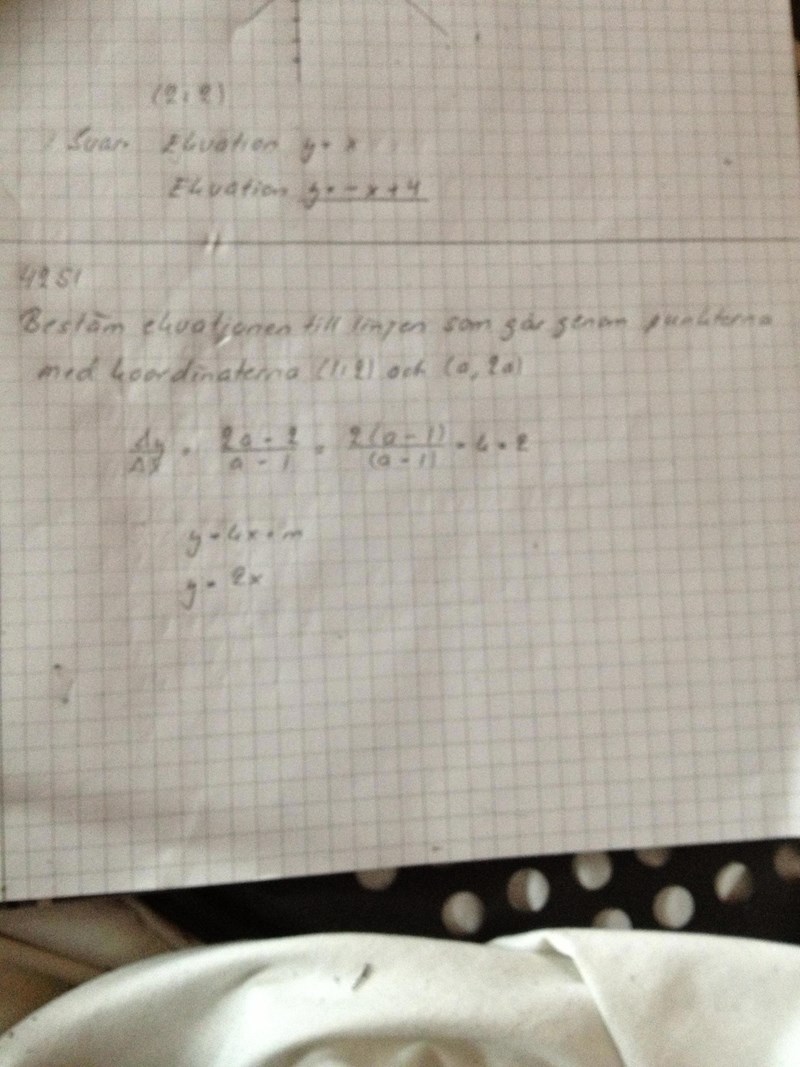 (2, 2)
Svar. Ekvation y = x
Ekvation y = -x + 4
4251
Bestäm ekvationen till linjen som går genom punkterna
med koordinaterna (1,2) och (a, 2a)
Δy/Δx = 2a - 2/a - 1 = 2(a - 1)/(a - 1) = k = 2
y = kx + m
y = 2x